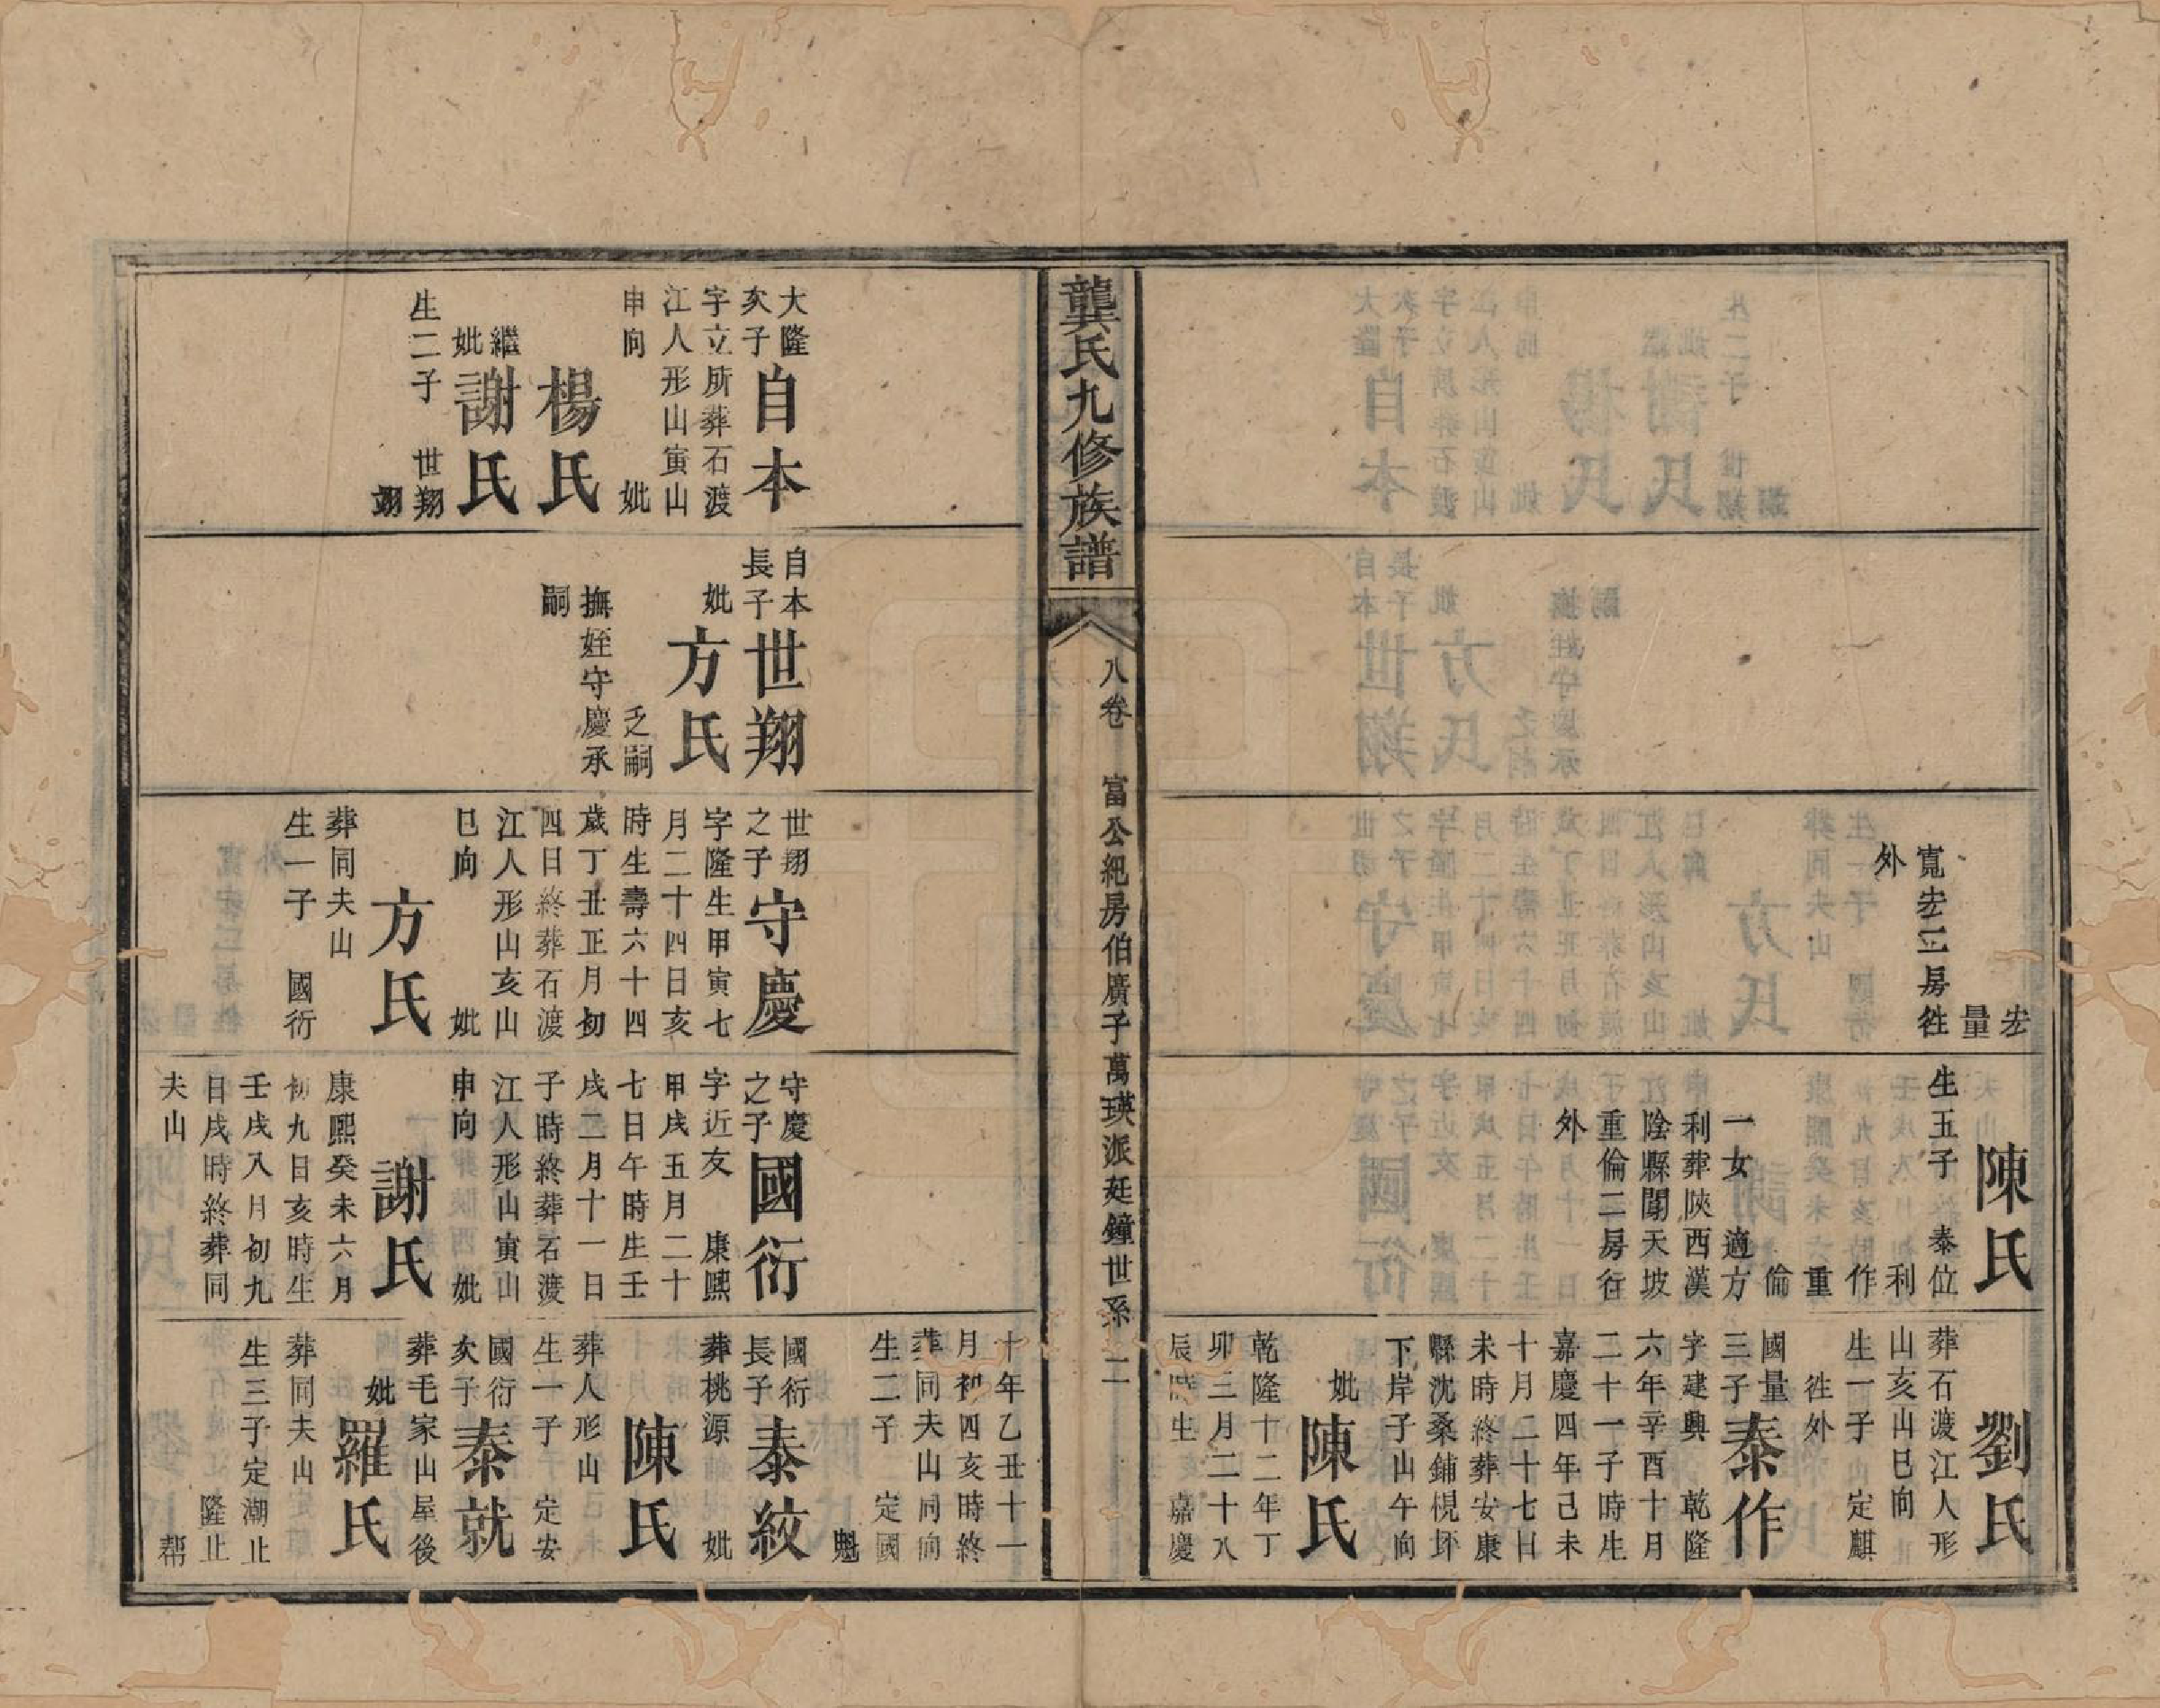 宏
量
寬宏二房徃
外
陳氏
生五子 泰位
利
作
重
倫
一女 適方
利葬陝西漢
陰縣閿天坡
重倫二房徃
外
劉氏
葬石渡江人形
山亥山巳向
生一子 定麒
徃外
國量
三子
泰作
字建興 乾隆
六年辛酉十月
二十一子時生
嘉慶四年己未
十月二十七日
未時終葬安康
縣沈桑鋪梘坏
下岸子山午向
妣
陳氏
乾隆十二年丁
卯三月二十八
辰時生 嘉慶
龔氏九修族譜
八卷 富公紀房伯廣子萬瑛派廷鐘世系 二
大隆
次子
自本
字立所葬石渡
江人形山寅山
申向 妣
楊氏
繼
妣
謝氏
生二子 世翔
翊
自本
長子
世翔
妣
方氏
乏嗣
撫姪守慶承
嗣
世翔
之子
守慶
字隆生甲寅七
月二十四日亥
時生壽六十四
歲丁丑正月初
四日終葬石渡
江人形山亥山
巳向 妣
方氏
葬同夫山
生一子 國衍
守慶
之子
國衍
字近友 康熙
甲戌五月二十
七日午時生壬
戌二月十一日
子時終葬石渡
江人形山寅山
申向 妣
謝氏
康熙癸未六月
初九日亥時生
壬戌八月初九
日戌時終葬同
夫山
十年乙丑十一
月初四亥時終
葬同夫山同向
生二子 定國
魁
國衍
長子
泰紋
葬桃源 妣
陳氏
葬人形山
生一子 定安
國衍
次子
泰就
葬毛家山屋後
妣
羅氏
葬同夫山
生三子定潮止
隆止
幇